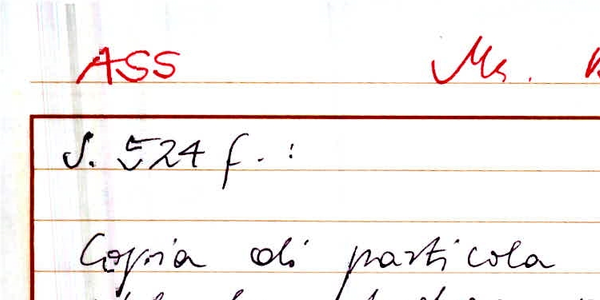 ASS Ms.
S. 524 f. :
Copia di particola